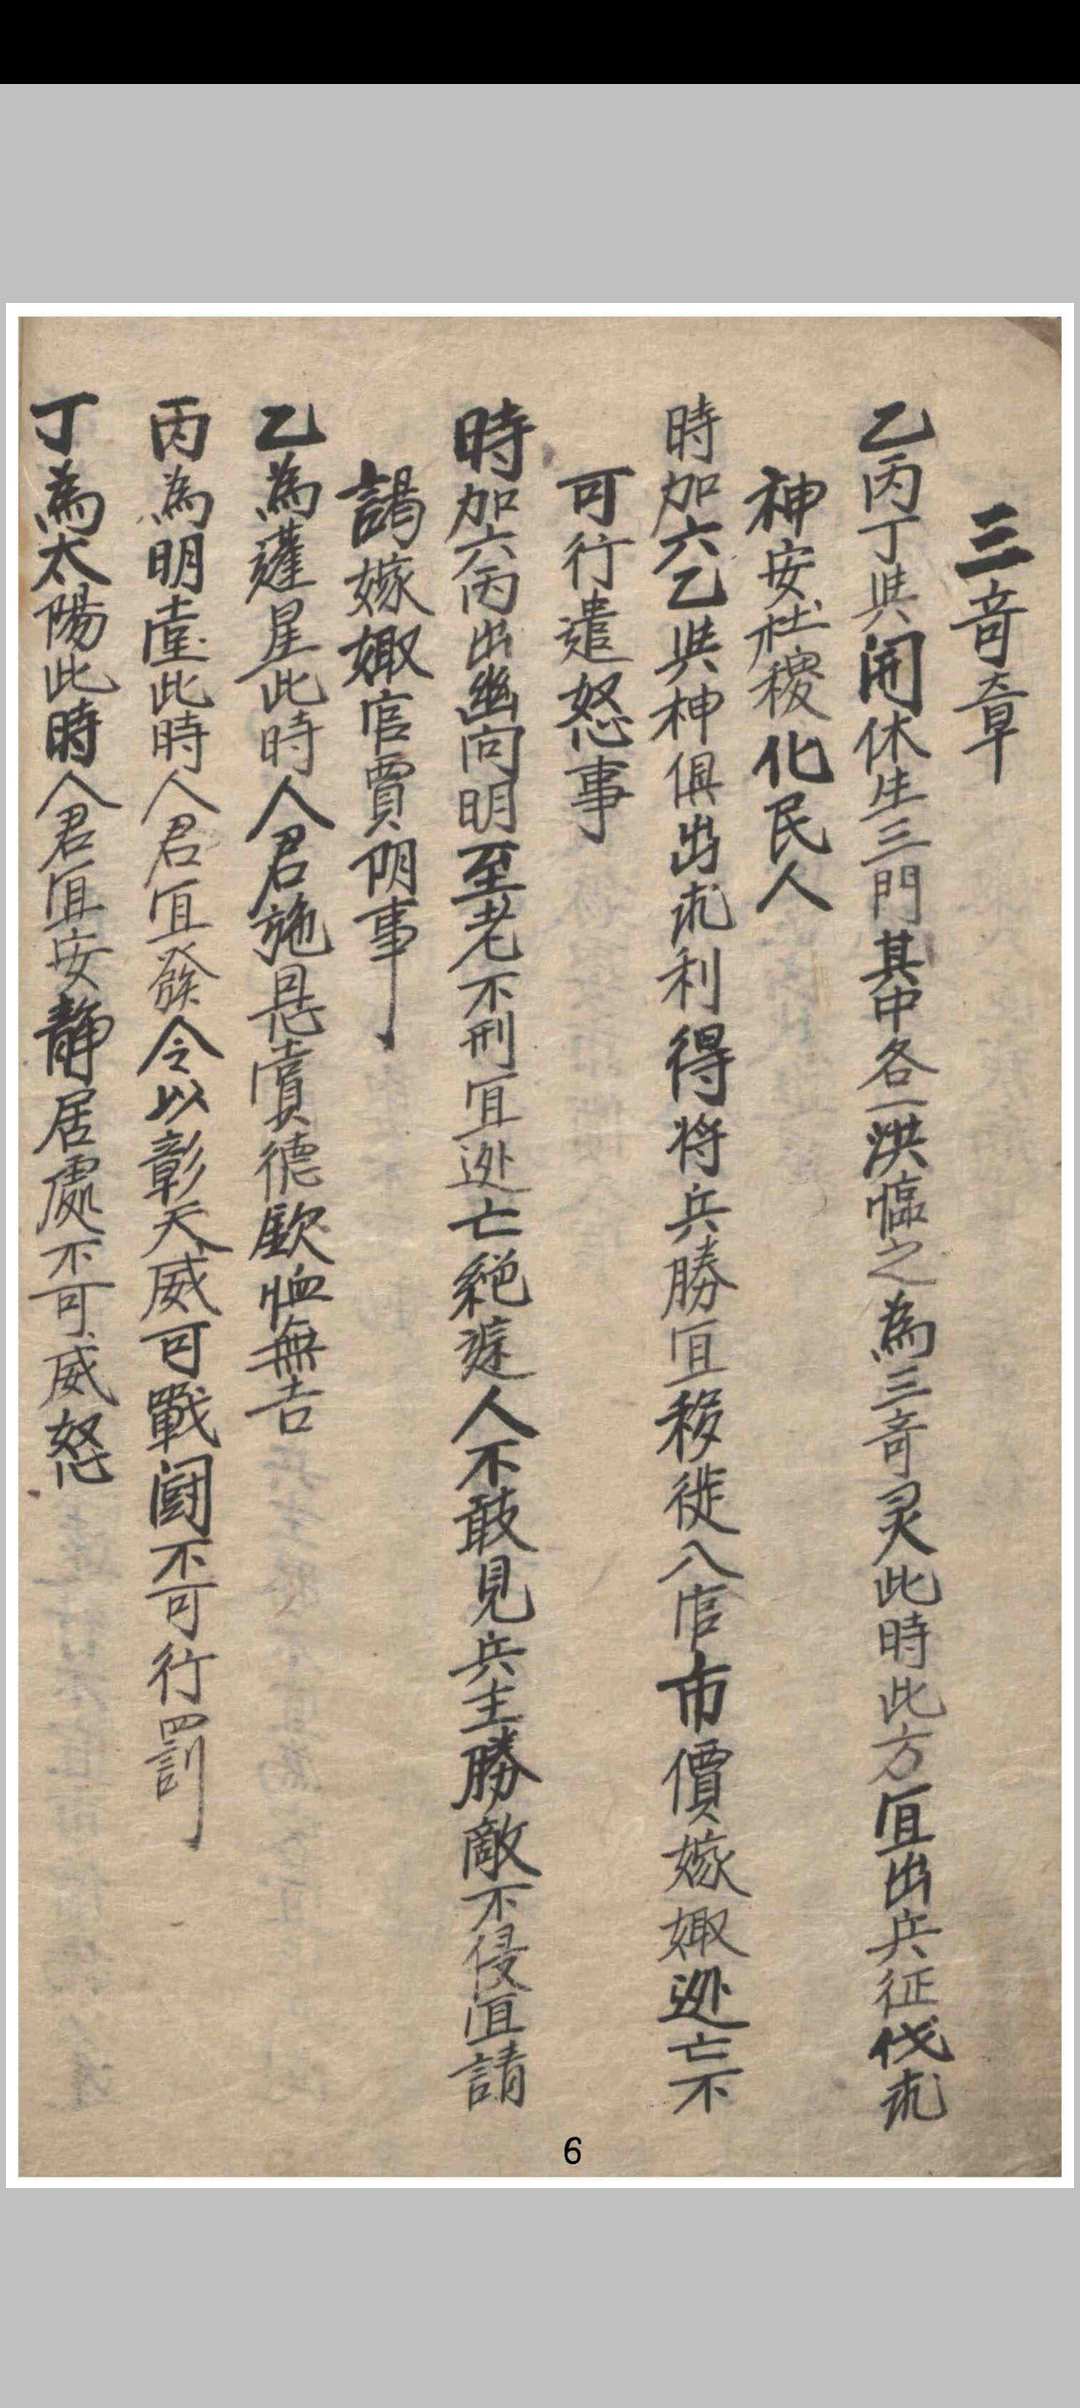 三奇章
乙丙丁與開休生三門其中各一洪臨之為三奇灵此時此方宜出兵征伐
神安社稷化民人
時加六乙與神俱出利得将兵勝宜移徙入官市價嫁娵逃亡不
可行遣怒事
時加六丙出幽向明至老不刑宜逃亡絕遠人不敢見兵主勝敵不侵宜請
謁嫁娵官賈陰事
乙為蓬星此時人君施恩賞德歓恤無告
丙為明堂此時人君宜發令以彰天威可戰鬪不可行罰
丁為太陽此時人君宜安静居處不可威怒
6